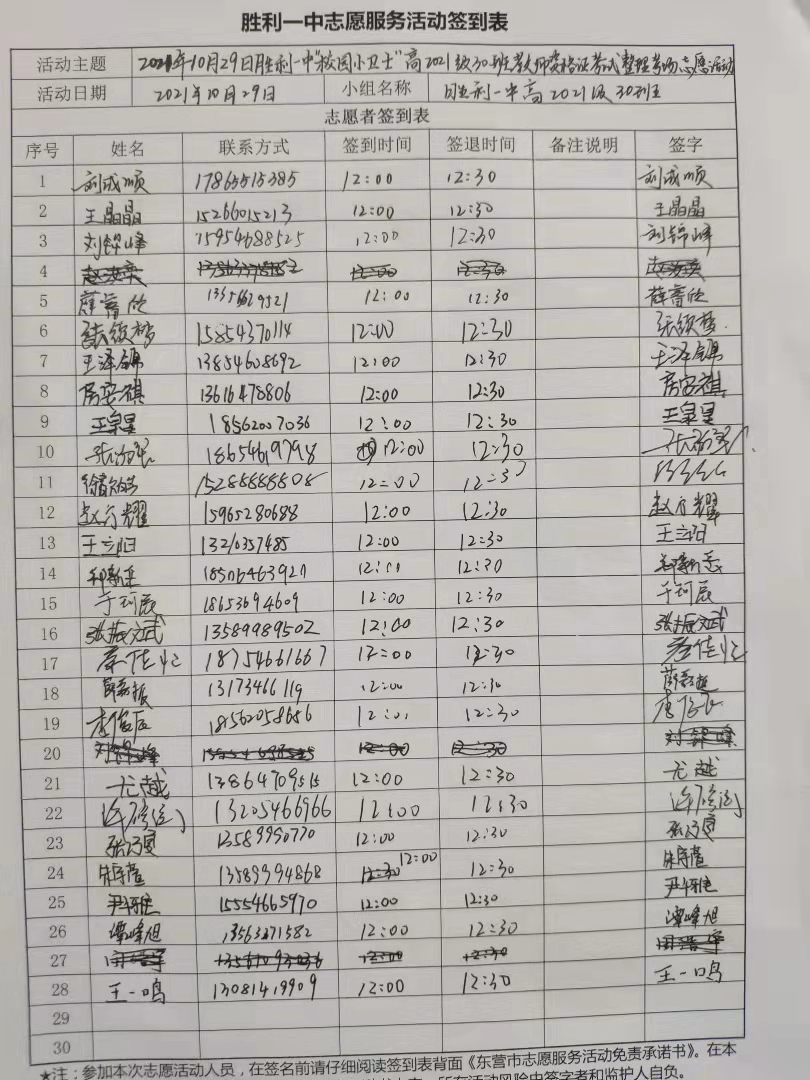 胜利一中志愿服务活动签到表
活动主题 2021年10月29日胜利一中“校园小卫士”高2021级30班教师资格证考试整理考场志愿活动
活动日期 2021年10月29日 小组名称 胜利一中高2021级30班班
志愿者签到表
序号 姓名 联系方式 签到时间 签退时间 备注说明 签字
1 刘成顺 17865515385 12:00 12:30 刘成顺
2 王晶晶 15266015213 12:00 12:30 王晶晶
3 刘锦峰 15954688525 12:00 12:30 刘锦峰
4 12:00 12:30
5 薛蓄欣 12:00 12:30 薛蓄欣
6 15854370114 12:00 12:30
7 王泽锦 13854608692 12:00 12:30 王泽锦
8 房安祺 13616478806 12:00 12:30 房安祺
9 王泉皇 18562007036 12:00 12:30 王泉皇
10 18654619798 12:00 12:30
11 15288888808 12:00 12:30
12 赵方耀 15965280688 12:00 12:30 赵方耀
13 王立阳 12:00 12:30 王立阳
14 18506463927 12:00 12:30
15 于珂辰 18653694609 12:00 12:30 于珂辰
16 张振文武 13589989502 12:00 12:30 张振文武
17 18754661667 12:00 12:30
18 13173466119 12:00 12:30
19 李俊辰 18562058656 12:00 12:30
20 刘锦峰 15954688525 12:00 12:30 刘锦峰
21 尤越 13864709515 12:00 12:30 尤越
22 13205466966 12:00 12:30
23 13589990770 12:00 12:30
24 13589994868 12:30 12:00 12:30
25 尹梓雅 15554665970 12:00 12:30
26 谭峰旭 13563271582 12:00 12:30 谭峰旭
27 12:00 12:30
28 王一鸣 13081419909 12:00 12:30 王一鸣
29
30
★注：参加本次志愿活动人员，在签名前请仔细阅读签到表背面《东营市志愿服务活动免责承诺书》。在本
所有活动风险由签字者和监护人自负。